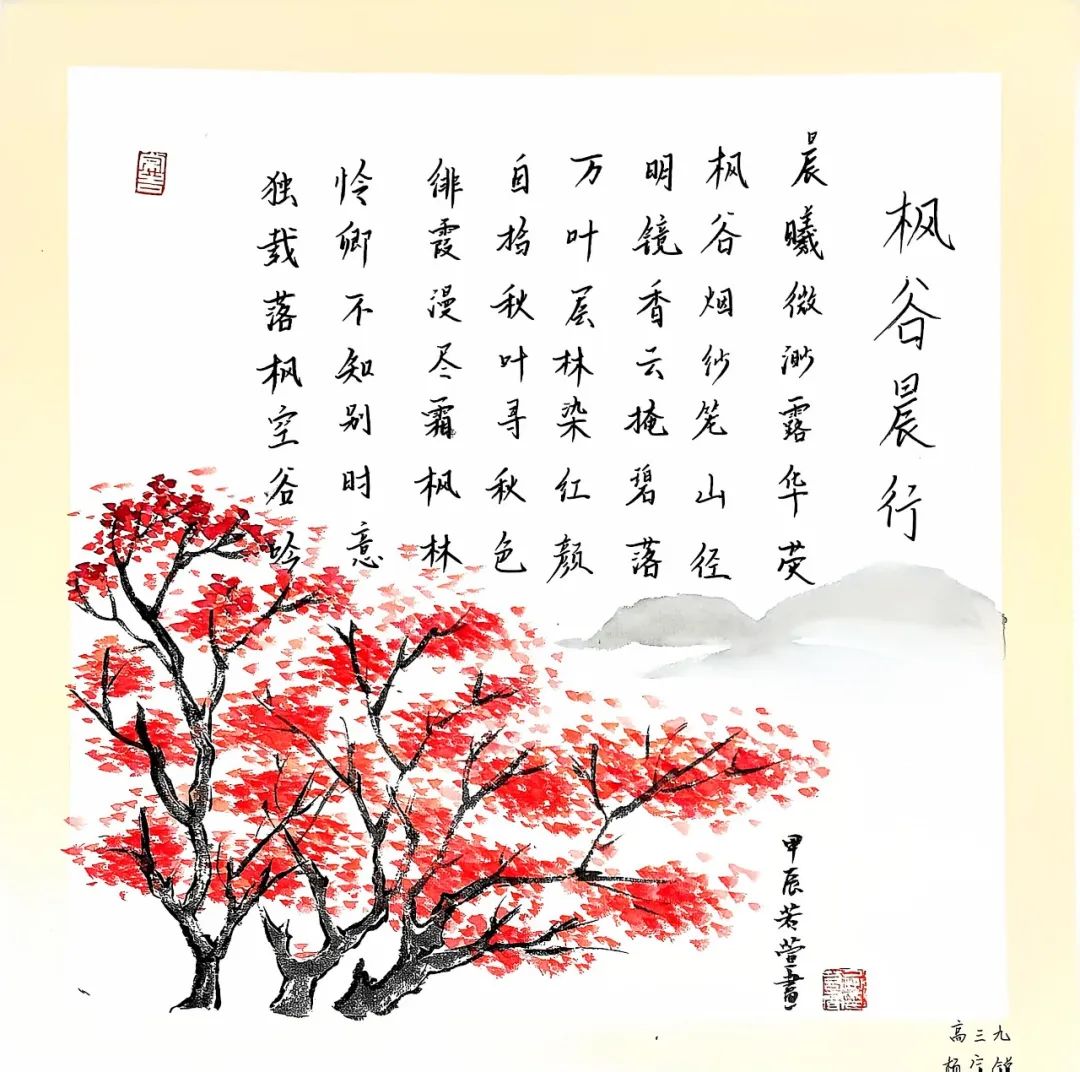 枫谷晨行
晨曦微渺露华荧
枫谷烟纱笼山径
明镜香云掩碧落
万叶层林染红颜
自拾秋叶寻秋色
绯霞漫尽霜枫林
怜卿不知别时意
独载落枫空谷吟
常吉
甲辰若萱畫
高三九